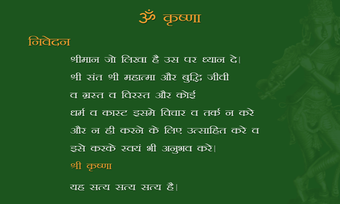 ॐ कृष्णा
निवेदन
श्रीमान जो लिखा है उस पर ध्यान दे।
श्री संत श्री महात्मा और बुद्धि जीवी
व ग्रस्त व विरस्त और कोई
धर्म व कास्ट इसमे विचार व तर्क न करे
और न ही करने के लिए उत्साहित करे व
इसे करके स्वयं भी अनुभव करे।
श्री कृष्णा
यह सत्य सत्य सत्य है।